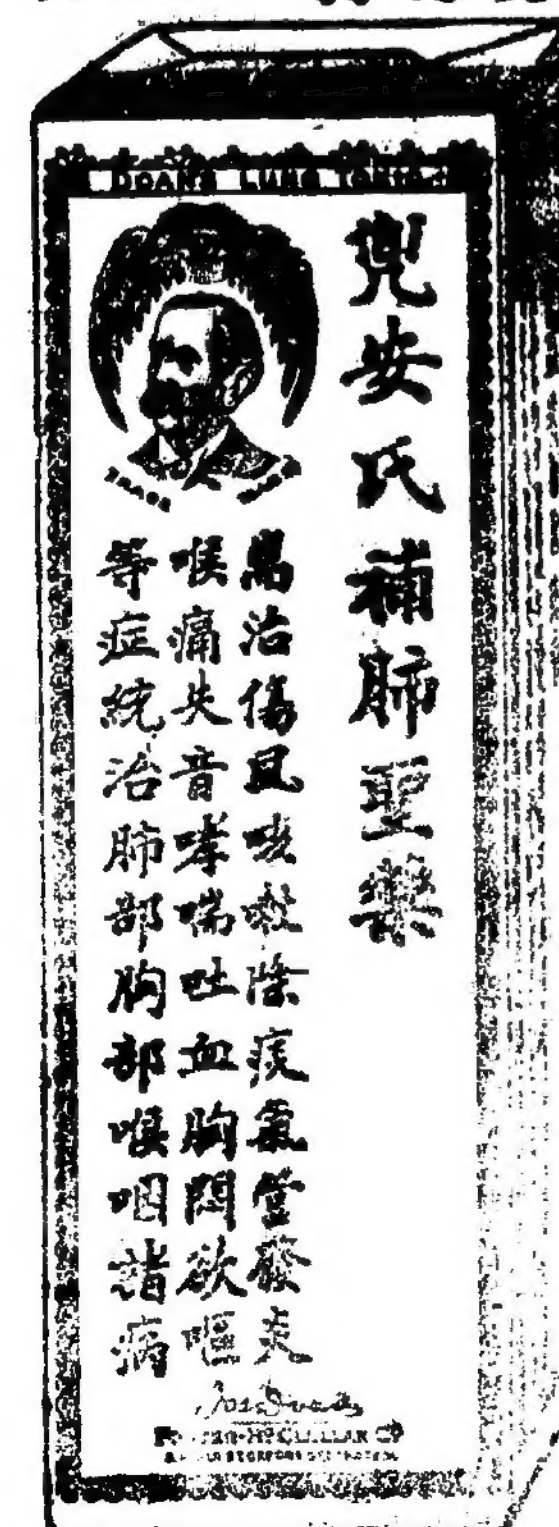 DOAN'S LUNG TONIC
兜安氏補肺聖藥
TRADE MARK
萬治傷風咳嗽除痰氣管發炎
喉痛失音哮喘吐血胸悶欲嘔
等症統治肺部胸部喉咽諸病
Jas Doan
FOSTER-McCLELLAN Cº